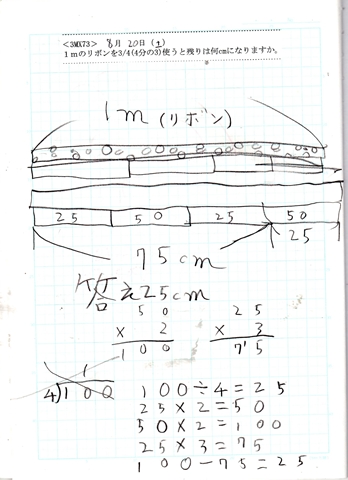 <3MX73> 8月 20日 (土)
1mのリボンを3/4(4分の3)使うと残りは何cmになりますか。
1m (リボン)
25 50 25 50
25
75cm
答え25cm
50 25
× 2 × 3
100 75
1
4)100
100÷4=25
25×2=50
50×2=100
25×3=75
100-75=25